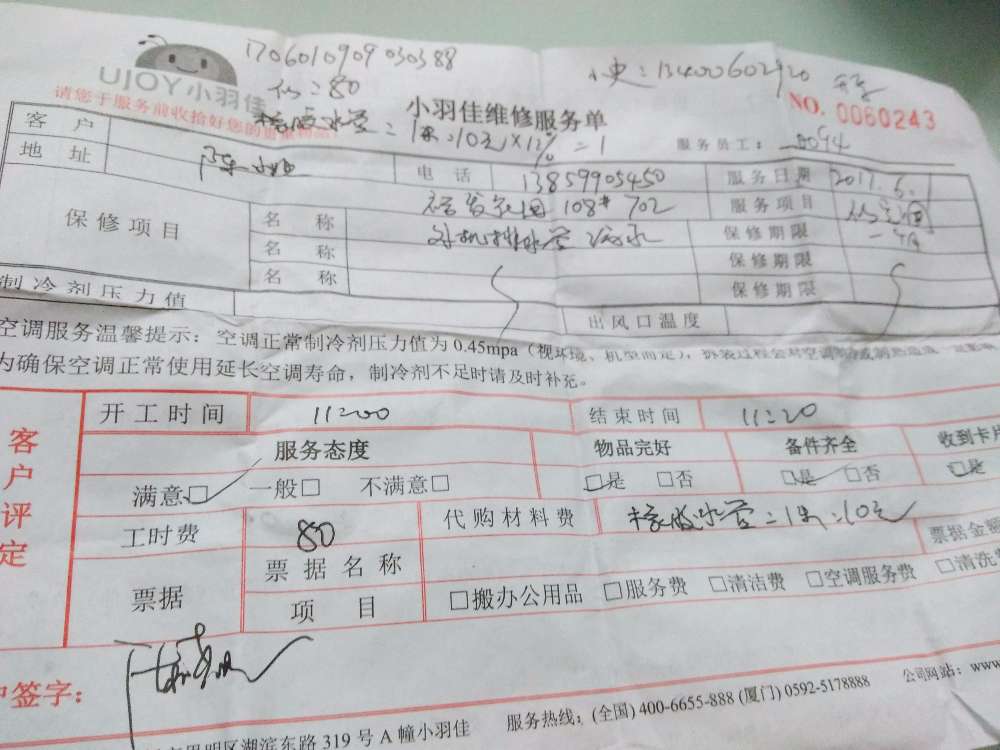 1706010909030388
13400602920
UJOY小羽佳
80
请您于服务前收拾好您的贵重物品!
小羽佳维修服务单
NO. 0060243
橡胶水管=1米:10元×1
服务员工: 0094
客户
陈小姐
电话 13859905450
服务日期 2017.6.1
地址
花园 108# 702
服务项目
保修项目
名称 外机排水管漏水
保修期限 一年
名称
保修期限
名称
保修期限
制冷剂压力值
出风口温度
空调服务温馨提示:空调正常制冷剂压力值为 0.45mpa(视环境、机型而定),拆装过程会对空调
为确保空调正常使用延长空调寿命,制冷剂不足时请及时补充。
客户评定
开工时间 11:00 结束时间 11:20
服务态度 物品完好 备件齐全 收到卡片
满意□ 一般□ 不满意□ □是 □否 □是 □否 □是
工时费 80 代购材料费 橡胶水管=1米:10元 票据金额
票据
票据名称
项目 □搬办公用品 □服务费 □清洁费 □空调服务费 □清洗
户签字:
思明区湖滨东路 319 号 A 幢小羽佳 服务热线:(全国) 400-6655-888 (厦门) 0592-5178888 公司网站:www